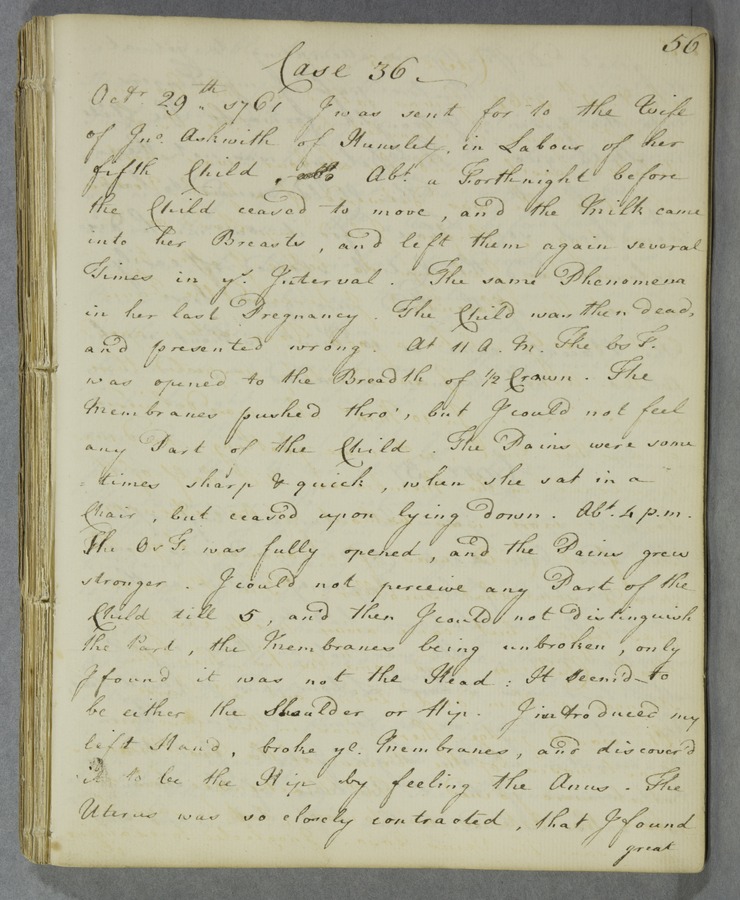 56
Case 36
Octr. 29th 1761 I was sent for to the Wife
of Jno. Askwith of Hunslet, in Labour of her
fifth Child. Abt. a Forthnight before
the Child ceased to move, and the Milk came
into her Breasts, and left them again several
Times in ye. Interval. The same Phenomena
in her last Pregnancy. The Child was then dead,
and presented wrong. At 11 A. M. The Os T.
was opened to the Breadth of 1/2 Crown. The
Membranes pushed thro', but I could not feel
any Part of the Child. The Pains were some
times sharp & quick, when she sat in a
Chair, but ceased upon lying down. Abt. 4 p.m.
The Os T. was fully opened, and the Pains grew
stronger. I could not perceive any Part of the
Child till 5, and then I could not distinguish
the Part, the Membranes being unbroken, only
I found it was not the Head: It seem'd to
be either the Shoulder or Hip. I introduced my
left Hand, broke ye. Membranes, and discover'd
it to be the Hip by feeling the Anus. The
Uterus was so closely contracted, that I found
great